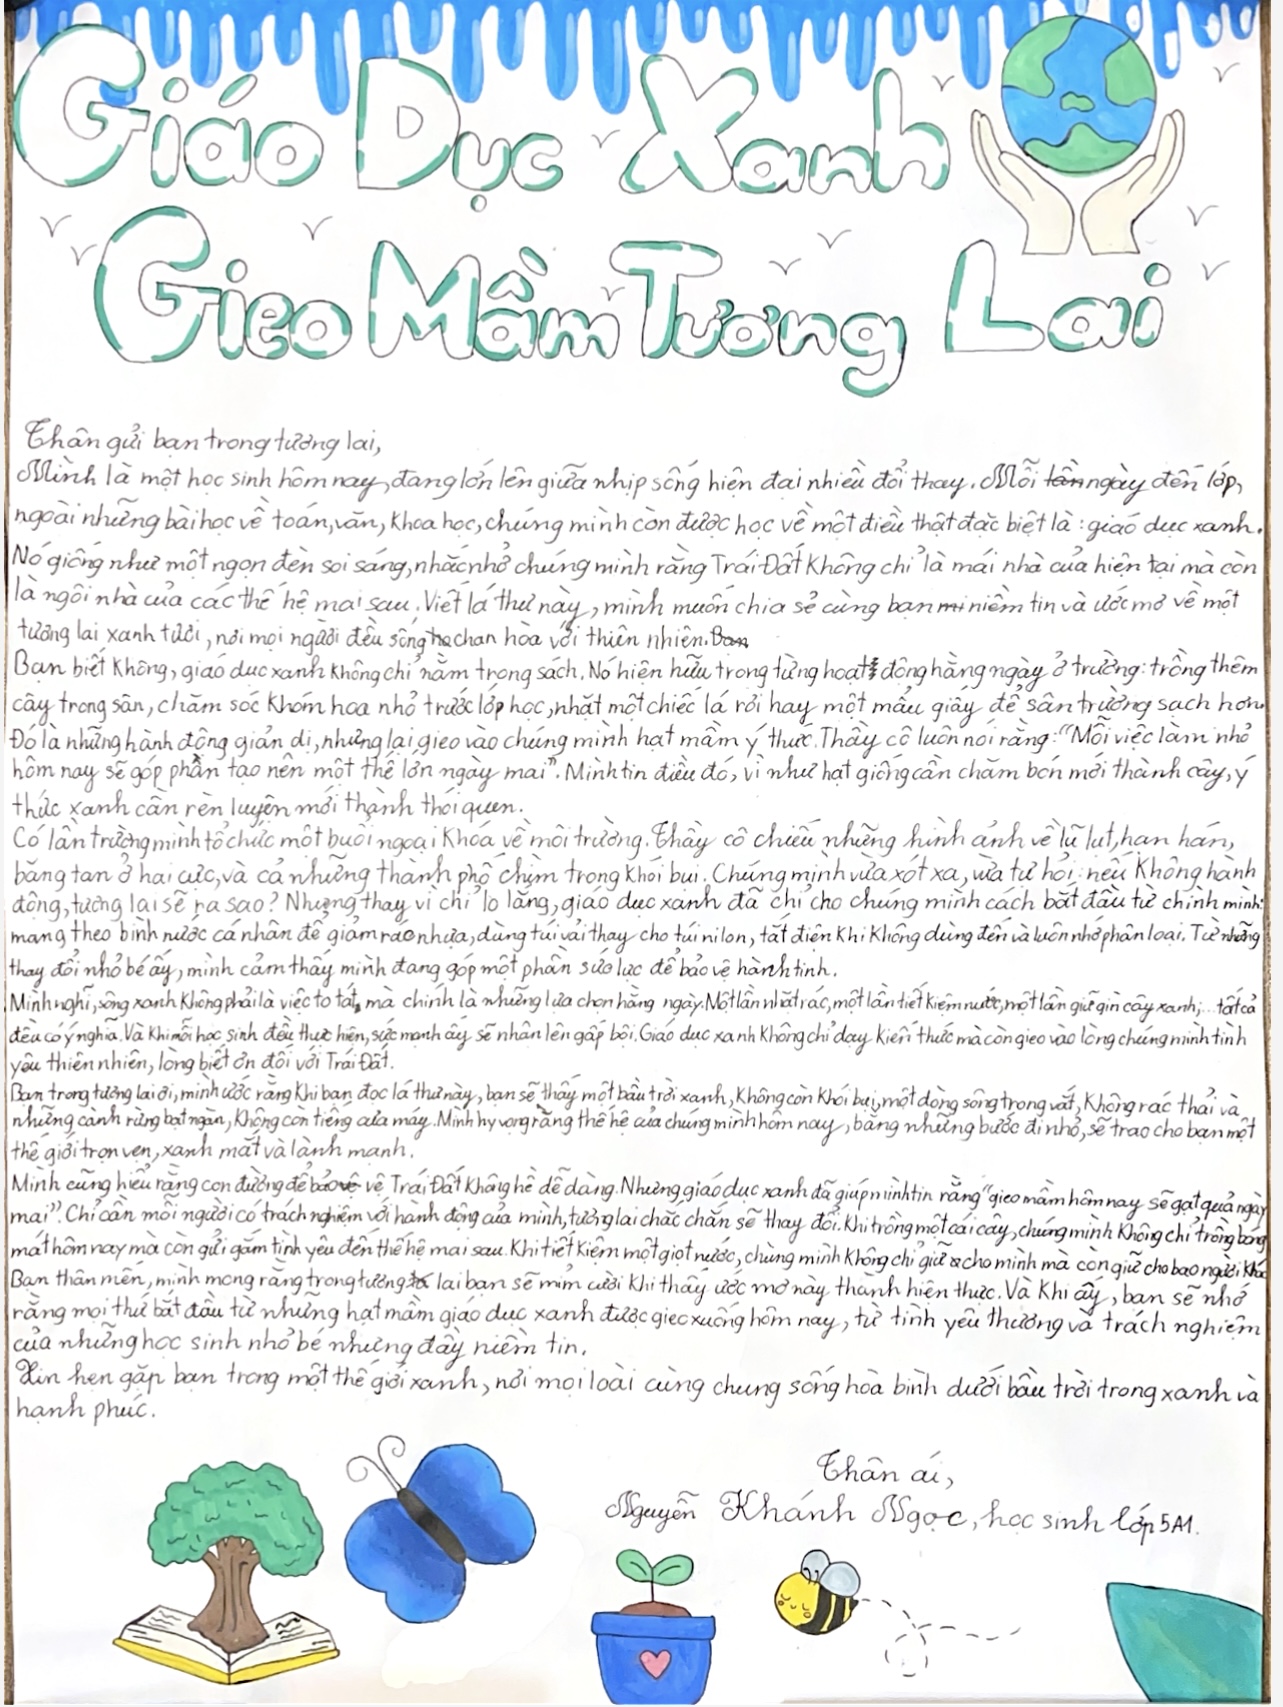 Giáo Dục Xanh
Gieo Mầm Tương Lai
Thân gửi bạn trong tương lai,
Mình là một học sinh hôm nay, đang lớn lên giữa nhịp sống hiện đại nhiều đổi thay. Mỗi lần ngày đến lớp,
ngoài những bài học về toán, văn, khoa học, chúng mình còn được học về một điều thật đặc biệt là: giáo dục xanh.
Nó giống như một ngọn đèn soi sáng, nhắc nhở chúng mình rằng Trái Đất không chỉ là mái nhà của hiện tại mà còn
là ngôi nhà của các thế hệ mai sau. Viết lá thư này, mình muốn chia sẻ cùng bạn mi niềm tin và ước mơ về một
tương lai xanh tươi, nơi mọi người đều sống ha chan hòa với thiên nhiên. Bạn
Bạn biết không, giáo dục xanh không chỉ nằm trong sách. Nó hiện hữu trong từng hoạt động hằng ngày ở trường: trồng thêm
cây trong sân, chăm sóc khóm hoa nhỏ trước lớp học, nhặt một chiếc lá rơi hay một mẩu giấy để sân trường sạch hơn.
Đó là những hành động giản dị, nhưng lại gieo vào chúng mình hạt mầm ý thức. Thầy cô luôn nói rằng: "Mỗi việc làm nhỏ
hôm nay sẽ góp phần tạo nên một thế lớn ngày mai". Mình tin điều đó, vì như hạt giống cần chăm bón mới thành cây, ý
thức xanh cần rèn luyện mới thành thói quen.
Có lần trường mình tổ chức một buổi ngoại khóa về môi trường. Thầy cô chiếu những hình ảnh về lũ lụt, hạn hán,
băng tan ở hai cực, và cả những thành phố chìm trong khói bụi. Chúng mình vừa xót xa, vừa tự hỏi: nếu không hành
động, tương lai sẽ ra sao? Nhưng thay vì chỉ lo lắng, giáo dục xanh đã chỉ cho chúng mình cách bắt đầu từ chính mình:
mang theo bình nước cá nhân để giảm rác nhựa, dùng túi vải thay cho túi nilon, tắt điện khi không dùng đến và luôn nhớ phân loại. Từ những
thay đổi nhỏ bé ấy, mình cảm thấy mình đang góp một phần sức lực để bảo vệ hành tinh.
Mình nghĩ, sống xanh không phải là việc to tát, mà chính là những lựa chọn hằng ngày. Một lần nhặt rác, một lần tiết kiệm nước, một lần giữ gìn cây xanh,... tất cả
đều có ý nghĩa. Và khi mỗi học sinh đều thực hiện, sức mạnh ấy sẽ nhân lên gấp bội. Giáo dục xanh không chỉ dạy kiến thức mà còn gieo vào lòng chúng mình tình
yêu thiên nhiên, lòng biết ơn đối với Trái Đất.
Bạn trong tương lai ơi, mình ước rằng khi bạn đọc lá thư này, bạn sẽ thấy một bầu trời xanh, không còn khói bụi, một dòng sông trong vắt, không rác thải và
những cánh rừng bạt ngàn, không còn tiếng cưa máy. Mình hy vọng rằng thế hệ của chúng mình hôm nay, bằng những bước đi nhỏ, sẽ trao cho bạn một
thế giới trọn vẹn, xanh mát và lành mạnh.
Mình cũng hiểu rằng con đường để bảo vệ vệ Trái Đất không hề dễ dàng. Nhưng giáo dục xanh đã giúp mình tin rằng "gieo mầm hôm nay sẽ gạt quả ngày
mai". Chỉ cần mỗi người có trách nghiệm với hành động của mình, tương lai chắc chắn sẽ thay đổi. Khi trồng một cái cây, chúng mình không chỉ trồng bóng
mát hôm nay mà còn gửi gắm tình yêu đến thế hệ mai sau. Khi tiết kiệm một giọt nước, chúng mình không chỉ giữ cho mình mà còn giữ cho bao người khác
Bạn thân mến, mình mong rằng trong tương lai bạn sẽ mỉm cười khi thấy ước mơ này thành hiện thực. Và khi ấy, bạn sẽ nhớ
rằng mọi thứ bắt đầu từ những hạt mầm giáo dục xanh được gieo xuống hôm nay, từ tình yêu thương và trách nghiệm
của những học sinh nhỏ bé nhưng đầy niềm tin.
Xin hẹn gặp bạn trong một thế giới xanh, nơi mọi loài cùng chung sống hòa bình dưới bầu trời trong xanh và
hạnh phúc.
Thân ái,
Nguyễn Khánh Ngọc, học sinh lớp 5A1.